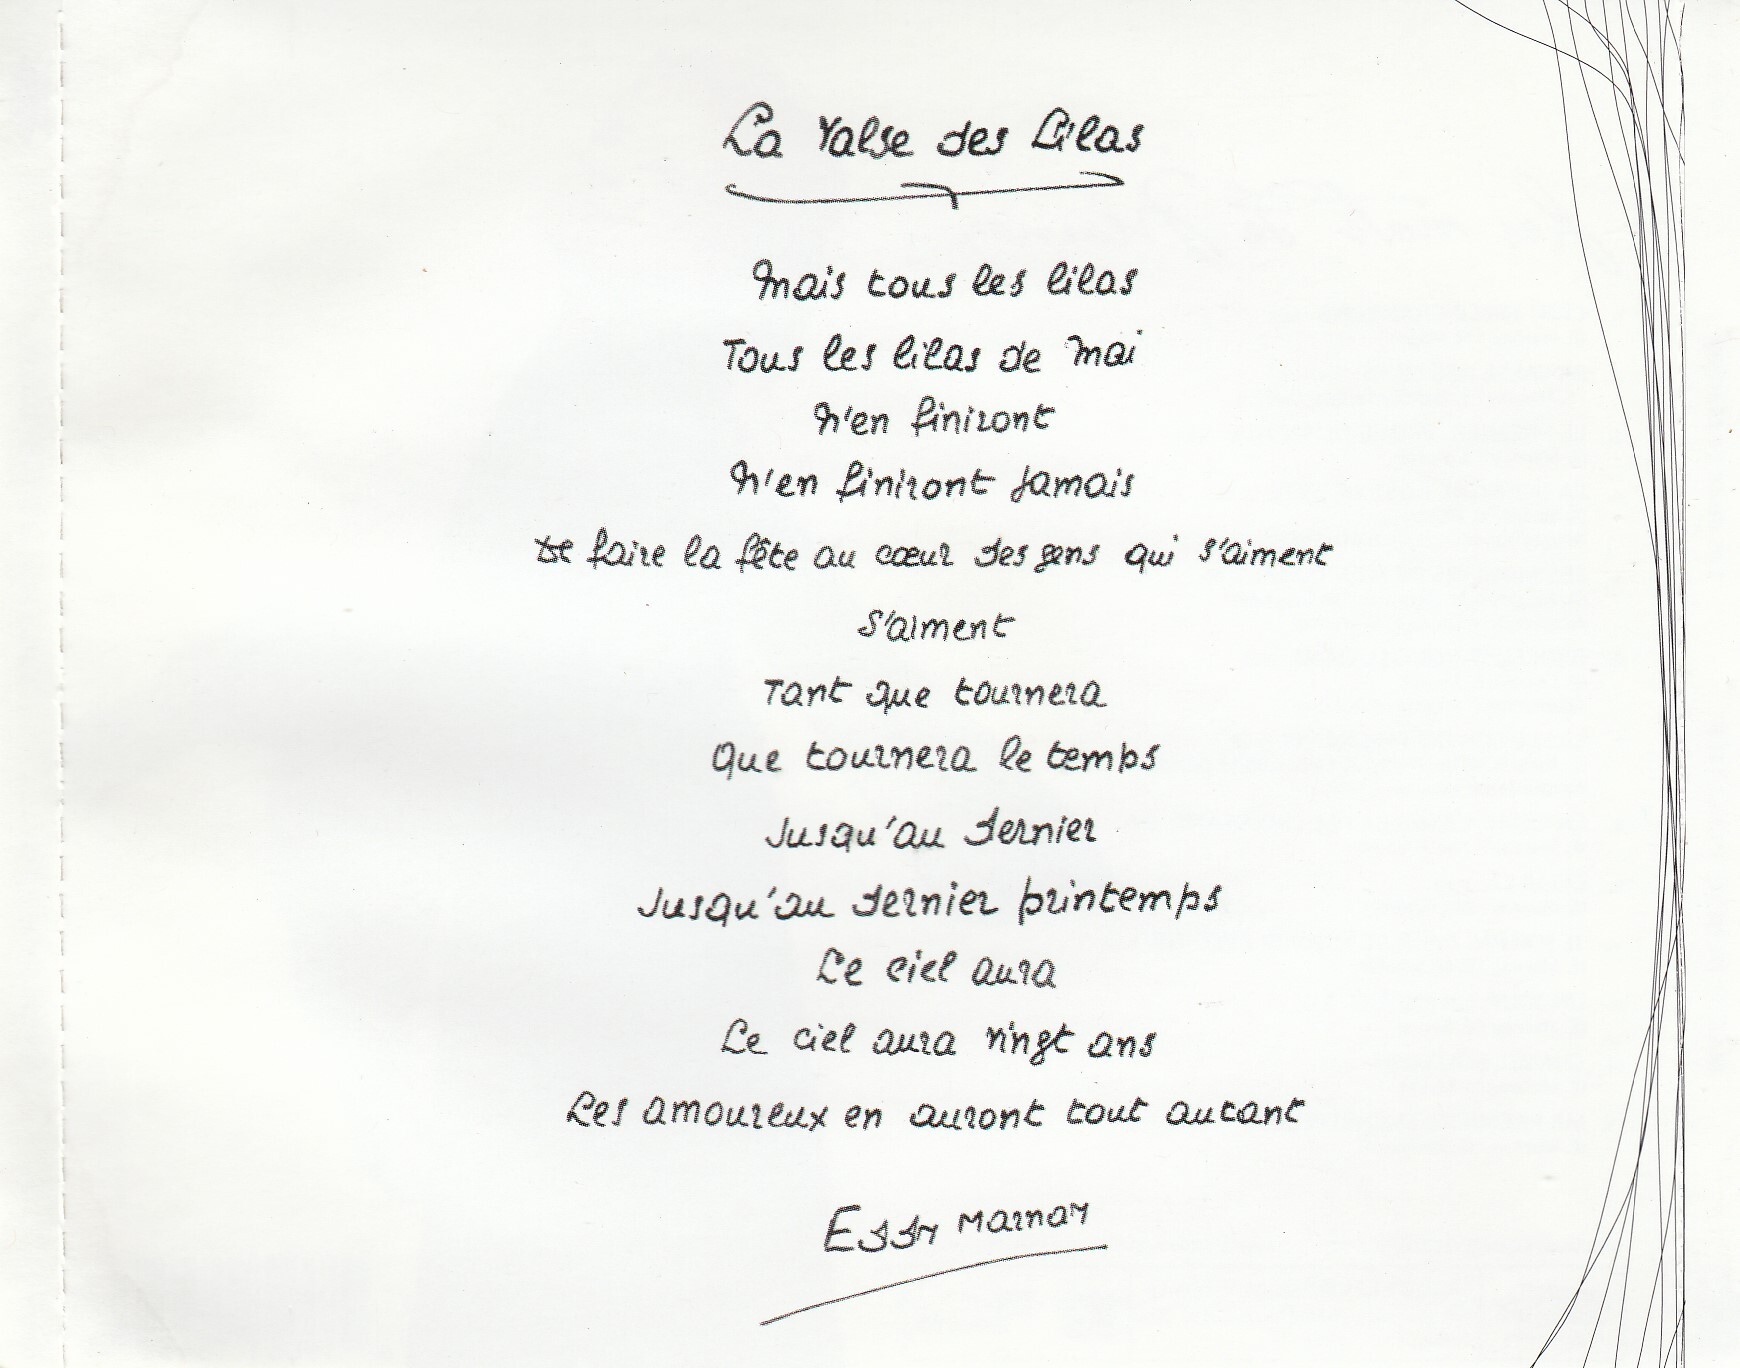 La Valse des Lilas
Mais tous les lilas
Tous les lilas de Mai
N'en finiront
N'en finiront jamais
De faire la fête au cœur des gens qui s'aiment
S'aiment
Tant que tournera
Que tournera le temps
Jusqu'au dernier
Jusqu'au dernier printemps
Le ciel aura
Le ciel aura vingt ans
Les amoureux en auront tout autant
Eddy Marnay